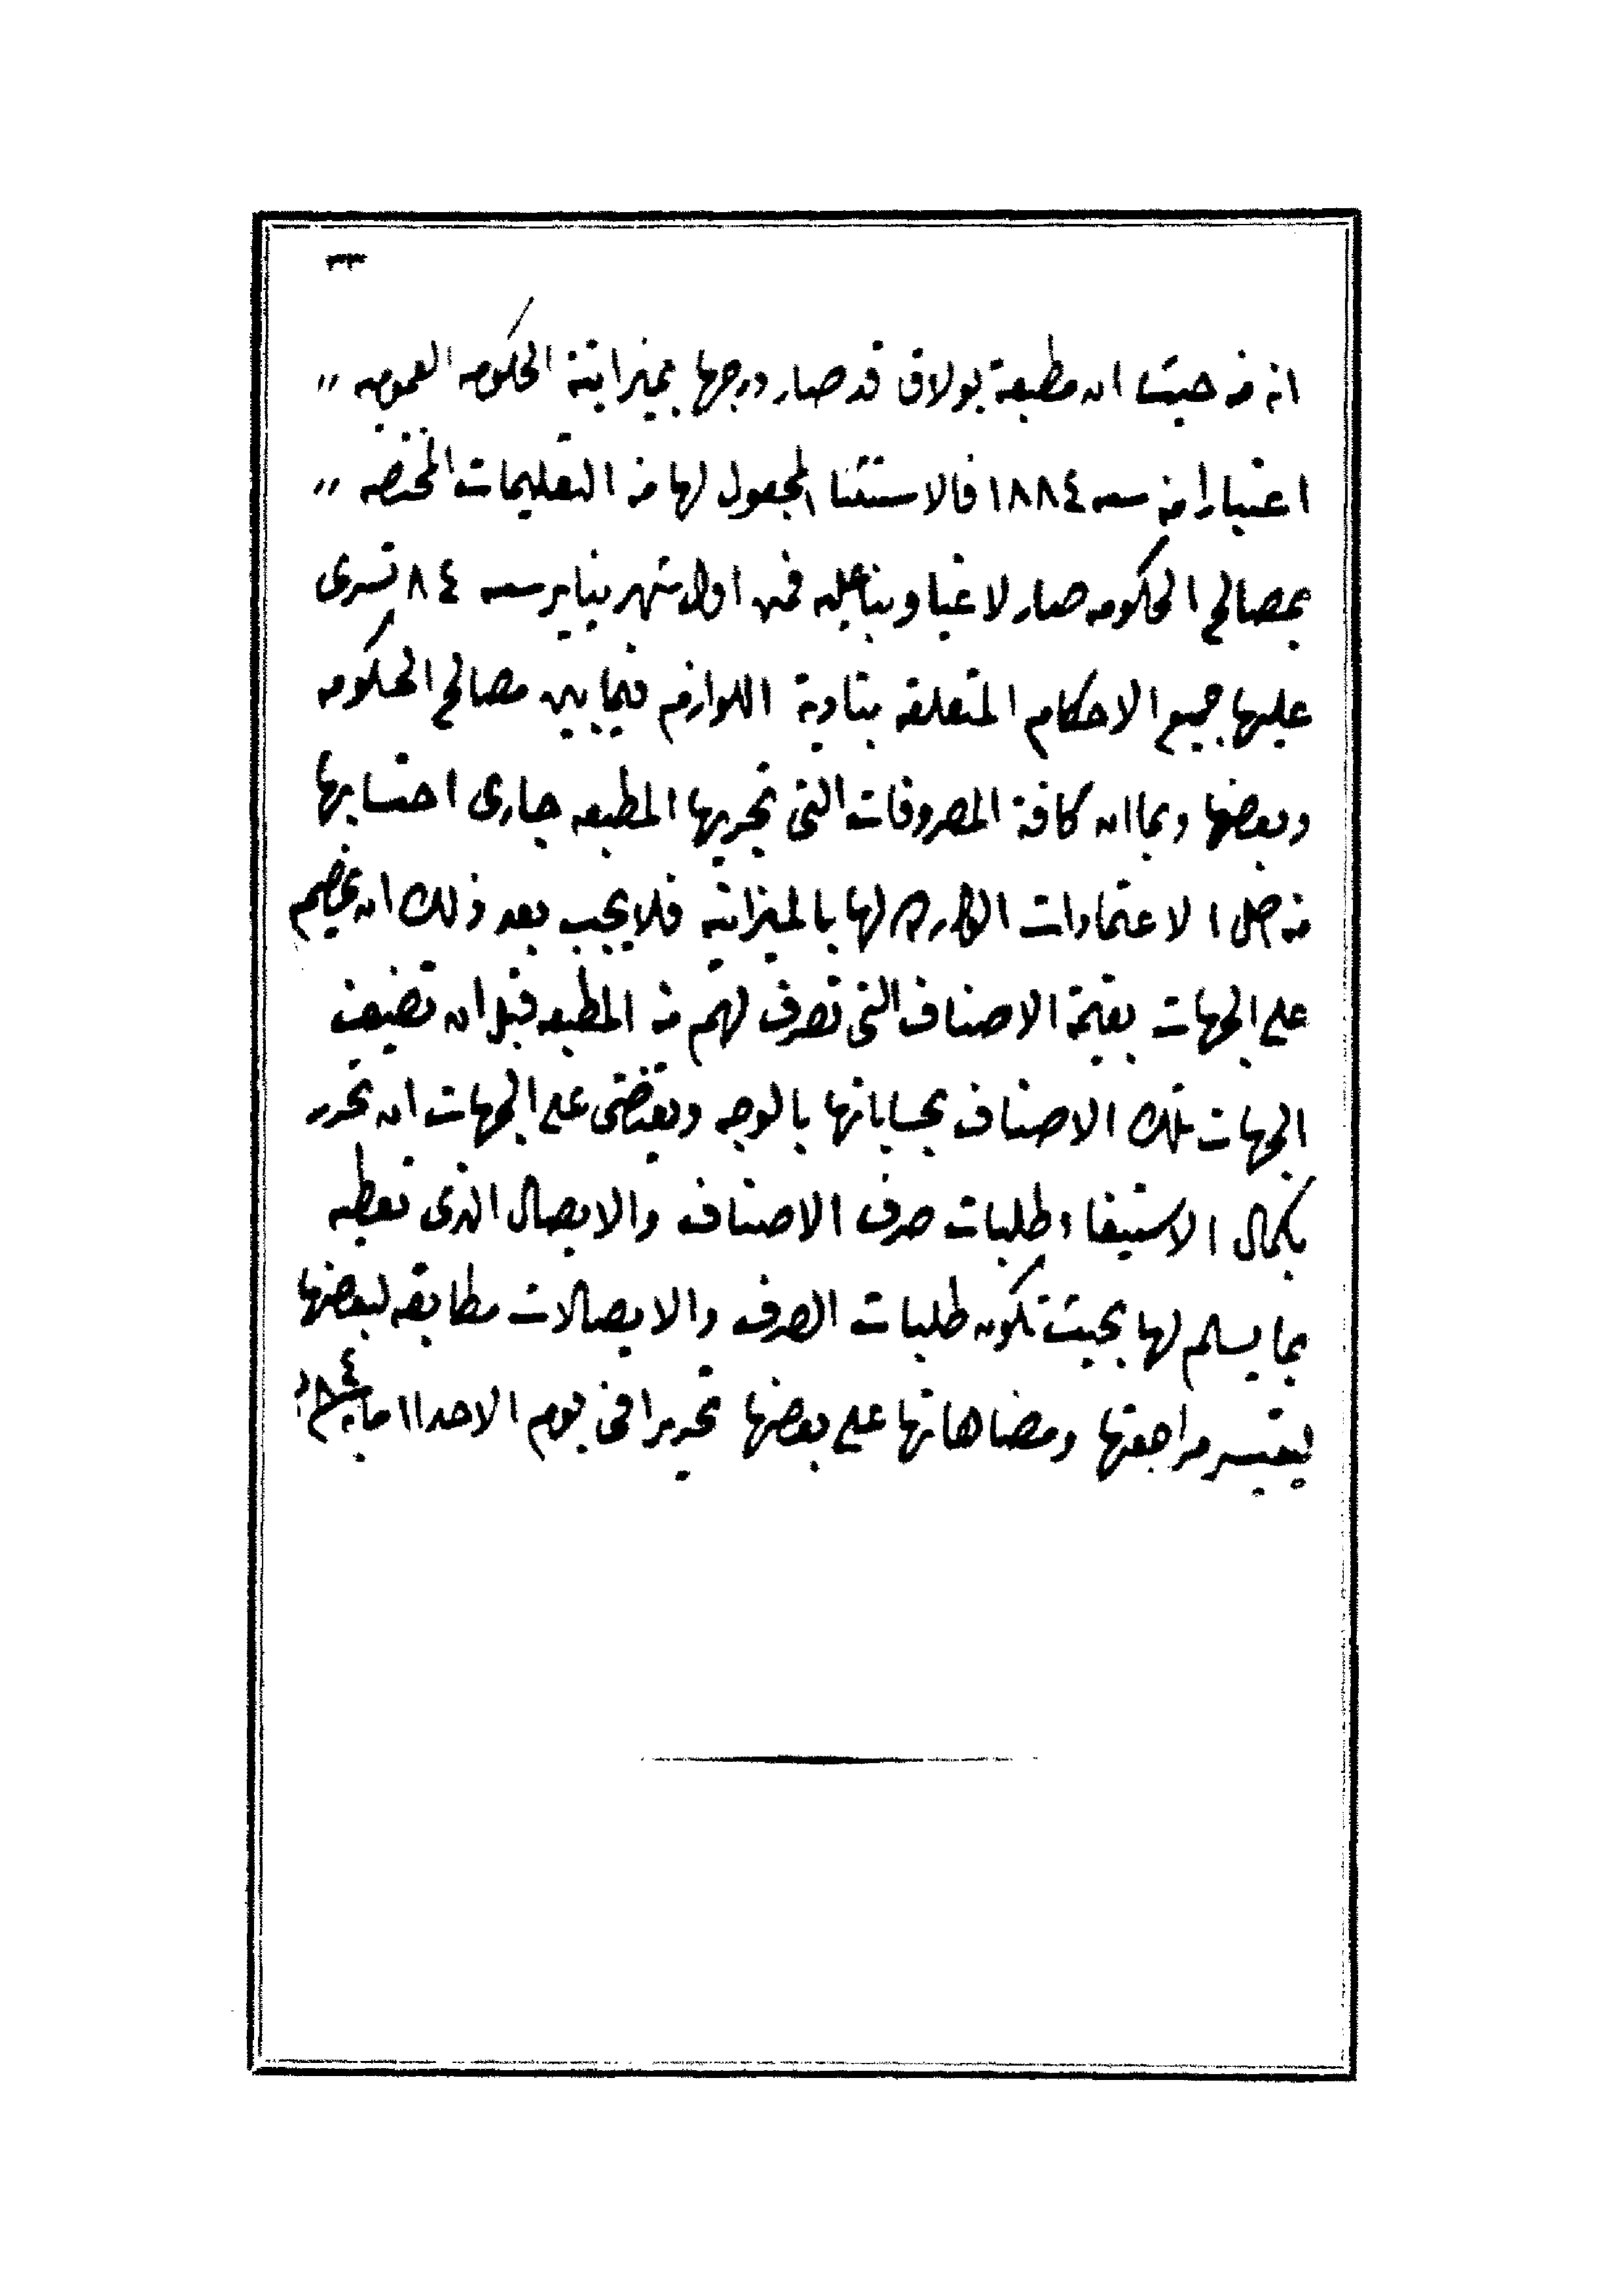 ٣٣
انه من حيث ان مطبعة بولاق قد صار درجها بميزانية الحكومه العموميه ״
اعتبارا من سنه ١٨٨٤ فالاستثنا المجعول لها من التعليمات المختصه ״
بمصالح الحكومه صار لاغيا وبنا عليه فمن اول شهر يناير سنه ٨٤ تسرى
عليها جميع الاحكام المتعلقه بتادية اللوازم فيما بين مصالح الحكومه
وبعضها وبما ان كافة المصروفات التى تجريها المطبعه جارى احتسابها
من اصل الاعتمادات لها بالميزانيه فلا يجب بعد ذلك ان تخصم
على الجهات بقيمة الاصناف التى تصرف لهم من المطبعه قبل ان تضيف
الجهات تلك الاصناف بحساباتها بالوجه ويقتضى على الجهات ان تحرر
بكمال الاستيفا طلبات صرف الاصناف والايصال الذى تعطيه
بما يسلم لها بحيث تكون طلبات الصرف والايصالات مطابقه لبعضها
ليتيسر مراجعتها ومضاهاتها على بعضها تحريرا فى يوم الاحد ١١ مايه ٨٤